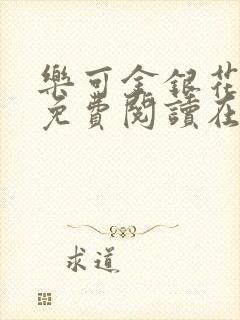 樂可金銀花
免費閱讀在
求道